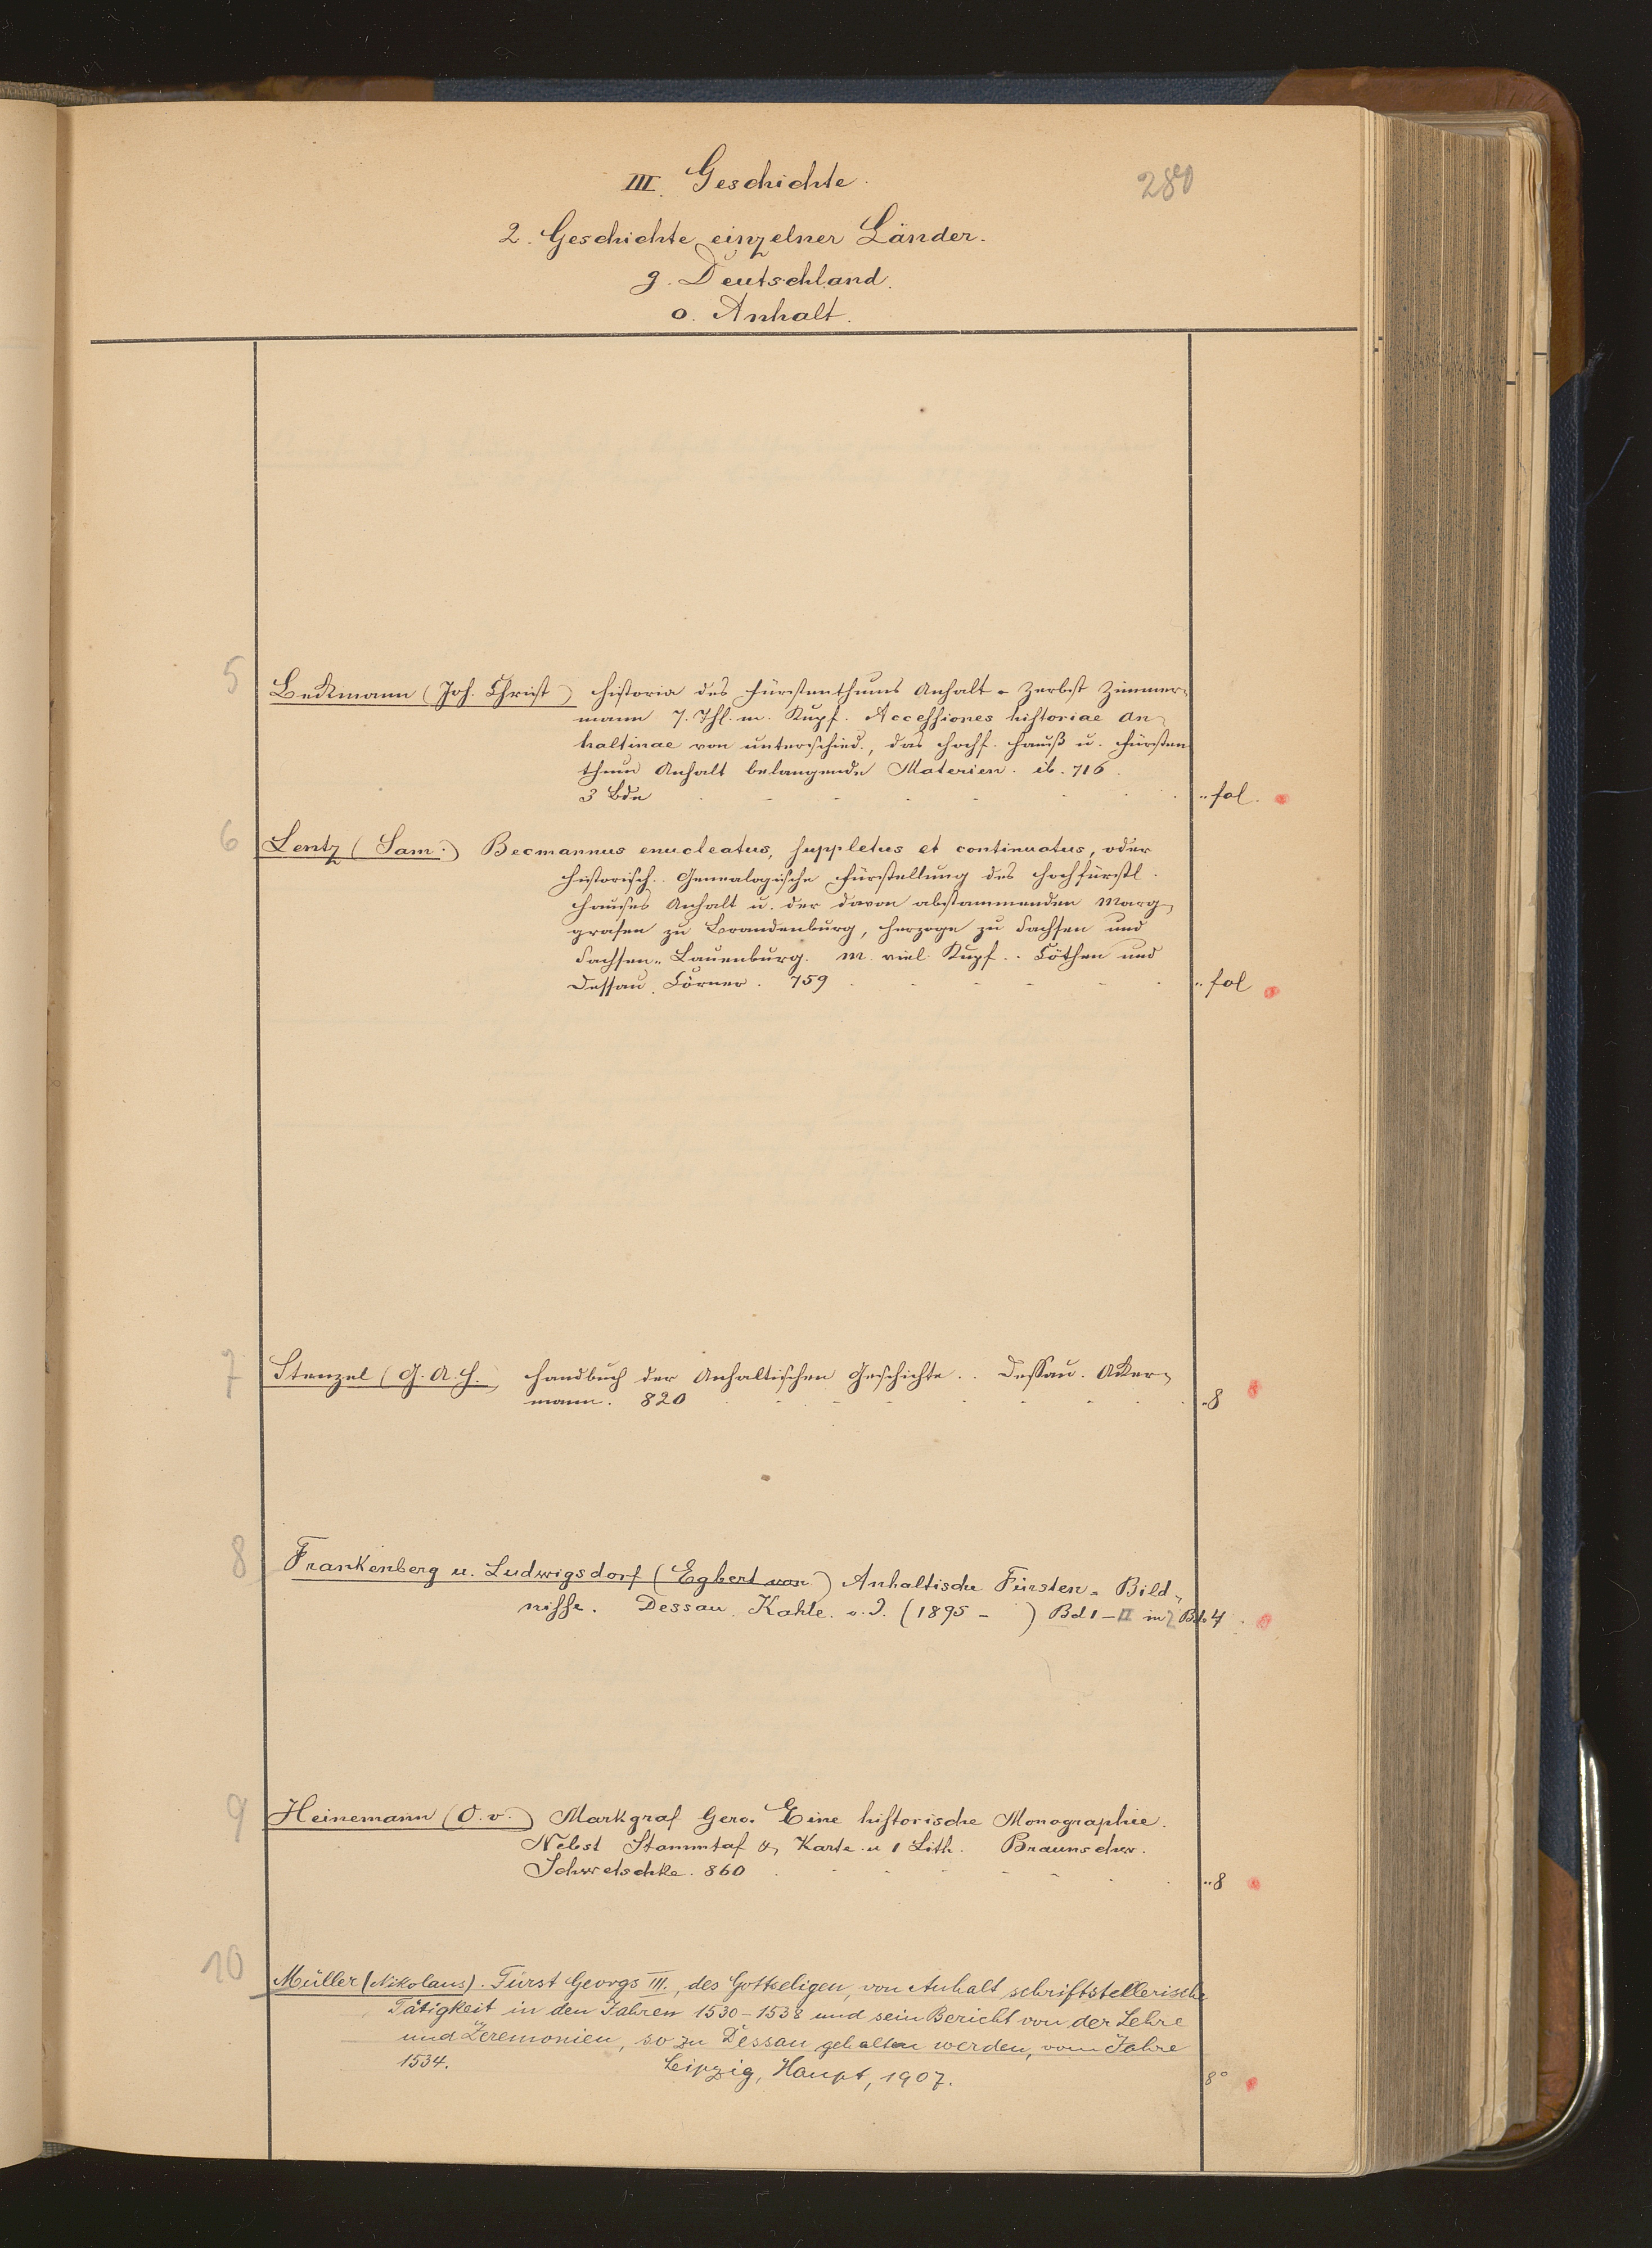 III. Geschichte.
280
2. Geschichte einzelner Länder.
g. Deutschland.
o. Anhalt.
5
Beckmann (Joh. Christ) Historia des Fürstenthums Anhalt - Zerbst Zimmer-
mann 7. Thl. m. Kupf. Accessiones historiae An-
haltinae von unterschied., das Hochf. Hauß u. Fürsten
thum Anhalt belangende Materien. ib. 716.
3 Bde
" fol.
6
Lentz (Sam.) Becmannus enucleatus, suppletus et continuatus, oder
Historisch. Genealogische Fürstellung des Hochfürstl.
Hauses Anhalt u. der davon abstammenden Marg-
grafen zu Brandenburg, Herzoge zu Sachsen und
Sachsen-Lauenburg. M. viel Kupf. Cöthen und
Dessau. Cörner. 759
" fol
7
Stenzel (G. A. H.) Handbuch der Anhaltischen Geschichte. Dessau. Acker-
mann. 820
" 8
8
Frankenberg u. Ludwigsdorf (Egbert von) Anhaltische Fürsten-Bild-
nisse. Dessau. Kahle. o. J. (1895 - ) Bd I-II in 2 Bd. 4
9
Heinemann (O. v.) Markgraf Gero. Eine historische Monographie.
Nebst Stammtaf Karte u 1 Lith. Braunschw.
Schwetschke. 860
" 8
10
Müller (Nikolaus). Fürst Georgs III., des Gottseligen, von Anhalt schriftstellerische
Tätigkeit in den Jahren 1530-1538 und sein Bericht von der Lehre
und Zeremonien, so zu Dessau gehalten werden, vom Jahre
1534. Leipzig, Haupt, 1907.
8°